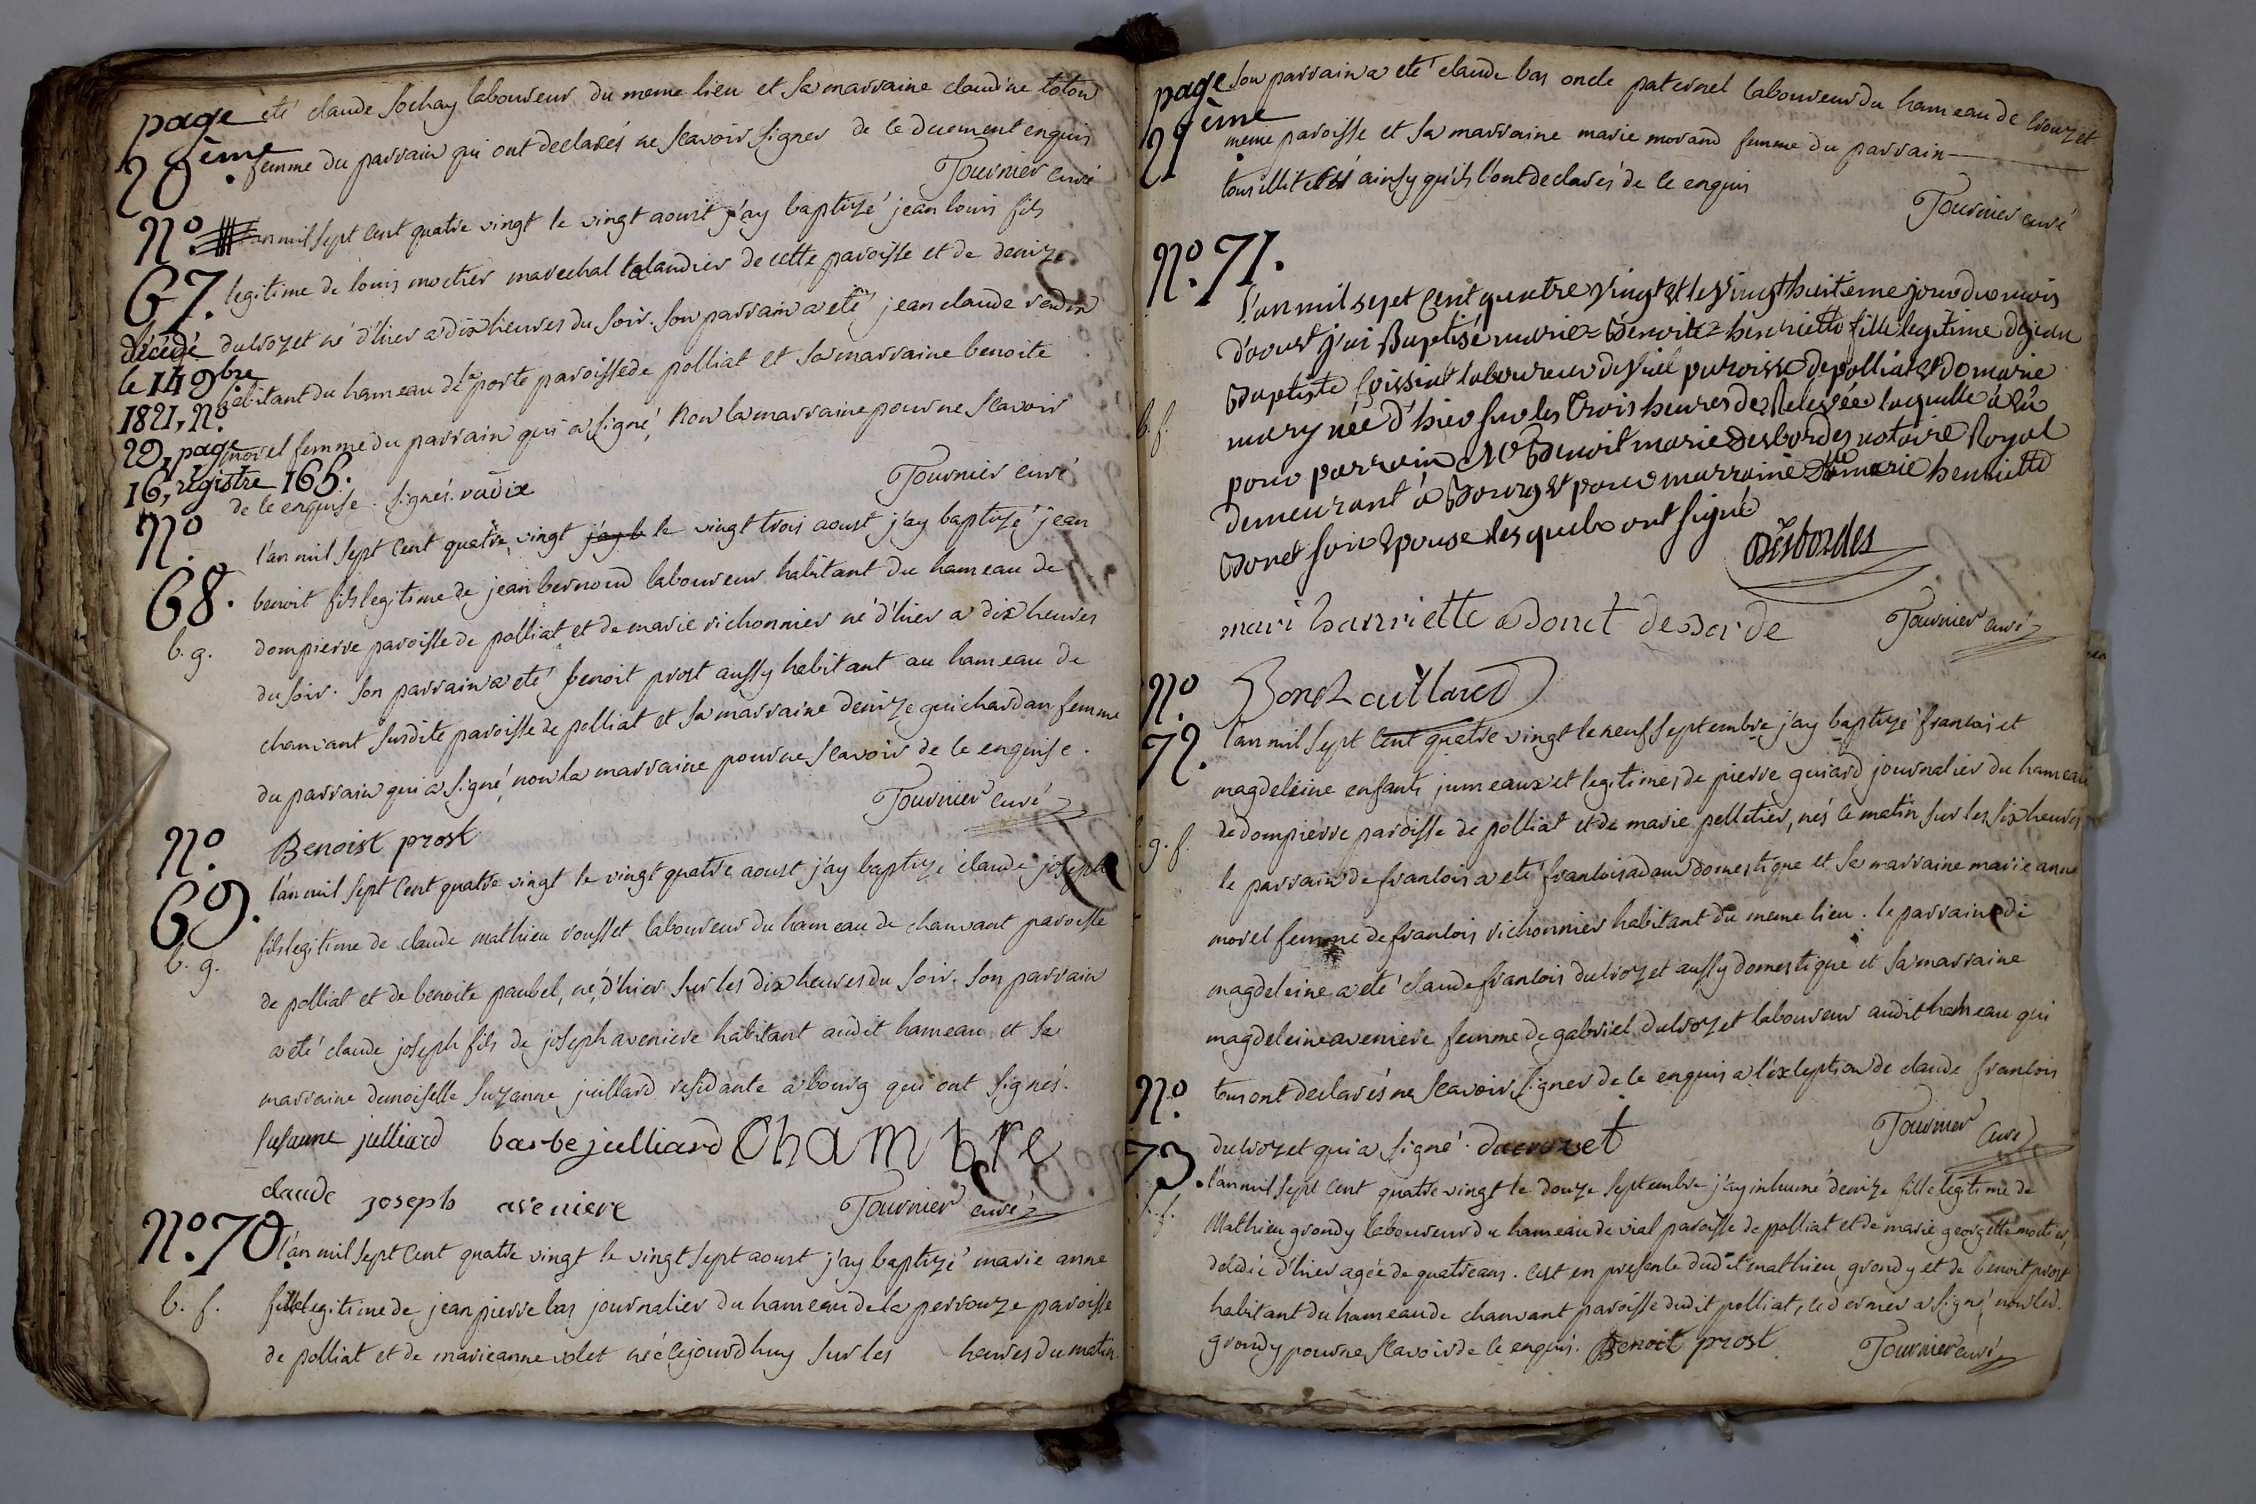 page 20ème.
eté claude sochay laboureur du meme lieu et sa marraine claudine toton
femme du parrain qui ont declarés ne scavoir signer de ce duement enquis
Tournier curé
No. 67.
décédé le 14 9bre 1821, No. 29, page 16, registre 165.
l'an mil sept cent quatre vingt le vingt aoust j'ay baptizé jean louis fils
legitime de louis moctier marechal talandier de cette paroisse et de denize
ducrozet né d'hier a dix heures du soir. son parrain a eté jean claude vadix
habitant du hameau de la porte paroisse de polliat et sa marraine benoite
morel femme du parrain qui a signé, non la marraine pour ne scavoir
de ce enquise. signés. vadix
Tournier curé
No. 68.
b. g.
l'an mil sept cent quatre vingt j'ay b le vingt trois aoust j'ay baptizé jean
benoit fils legitime de jean bernoud laboureur habitant du hameau de
dompierre paroisse de polliat et de marie richonnier né d'hier a dix heures
du soir. son parrain a eté benoit prost aussy habitant au hameau de
chanvant susdite paroisse de polliat et sa marraine denize guichardan femme
du parrain qui a signé, non la marraine pour ne scavoir de ce enquise.
Tournier curé
Benoist prost
No. 69.
b. g.
l'an mil sept cent quatre vingt le vingt quatre aoust j'ay baptizé claude joseph
fils legitime de claude mathieu rousset laboureur du hameau de chanvant paroisse
de polliat et de benoite paubel, né d'hier sur les dix heures du soir. son parrain
a eté claude joseph fils de joseph aveniere habitant audit hameau et sa
marraine demoiselle suzanne juillard residante a bourg qui ont signés.
susanne julliard barbe julliard Chambre
claude joseph aveniere
Tournier curé
No. 70.
b. f.
l'an mil sept cent quatre vingt le vingt sept aoust j'ay baptizé marie anne
fille legitime de jean pierre bas journalier du hameau de la perrouze paroisse
de polliat et de marie anne volet née cejourdhuy sur les heures du matin.
page 21ème
son parrain a eté claude bas oncle paternel laboureur du hameau de crouzet
meme paroisse et sa marraine marie morand femme du parrain
tous illiterés ainsy qu'ils l'ont declarés de ce enquis
Tournier curé
No. 71.
b. f.
L'an mil sept cent quatre vingt et le vingt huitième jour du mois
d'aoust j'ai Baptisé marie Benoite henriette fille legitime de jean
Baptiste Coissiat laboureur de viel paroisse de polliat et de marie
mury née d'hier sur les trois heures de Relevée laquelle a eû
pour parrain Me Benoit marie Desbordes notaire Royal
demeurant à Bourg et pour marraine Dlle marie henriette
Bonet son Epouse lesquels ont signé
Desbordes
mari hanriette Bonet desborde
Tournier curé
No. 72.
g. f.
l'an mil sept cent quatre vingt le neuf septembre j'ay baptizé francois et
magdeleine enfants jumeaux et legitimes de pierre guiard journalier du hameau
de dompierre paroisse de polliat et de marie pelletier, nés ce matin sur les six heures
le parrain de francois a eté francois adam domestique et sa marraine marie anne
morel femme de francois richonnier habitant du meme lieu. le parrain de
magdeleine a eté claude francois ducrozet aussy domestique et sa marraine
magdeleine aveniere femme de gabriel ducrozet laboureur audit hameau qui
tous ont declarés ne scavoir signer de ce enquis a l'exception de claude francois
ducrozet qui a signé. ducrozet
Tournier curé
No. 73.
f.
l'an mil sept cent quatre vingt le douze septembre j'ay inhumé denize fille legitime de
Mathieu grondy laboureur du hameau de vial paroisse de polliat et de marie georgette moctier,
decedée d'hier agée de quatre ans. c'est en presence dudit mathieu grondy et de benoit prost
habitant du hameau de chanvant paroisse dudit polliat, ce dernier a signé, non led.
grondy pour ne scavoir de ce enquis. Benoit prost
Tournier curé